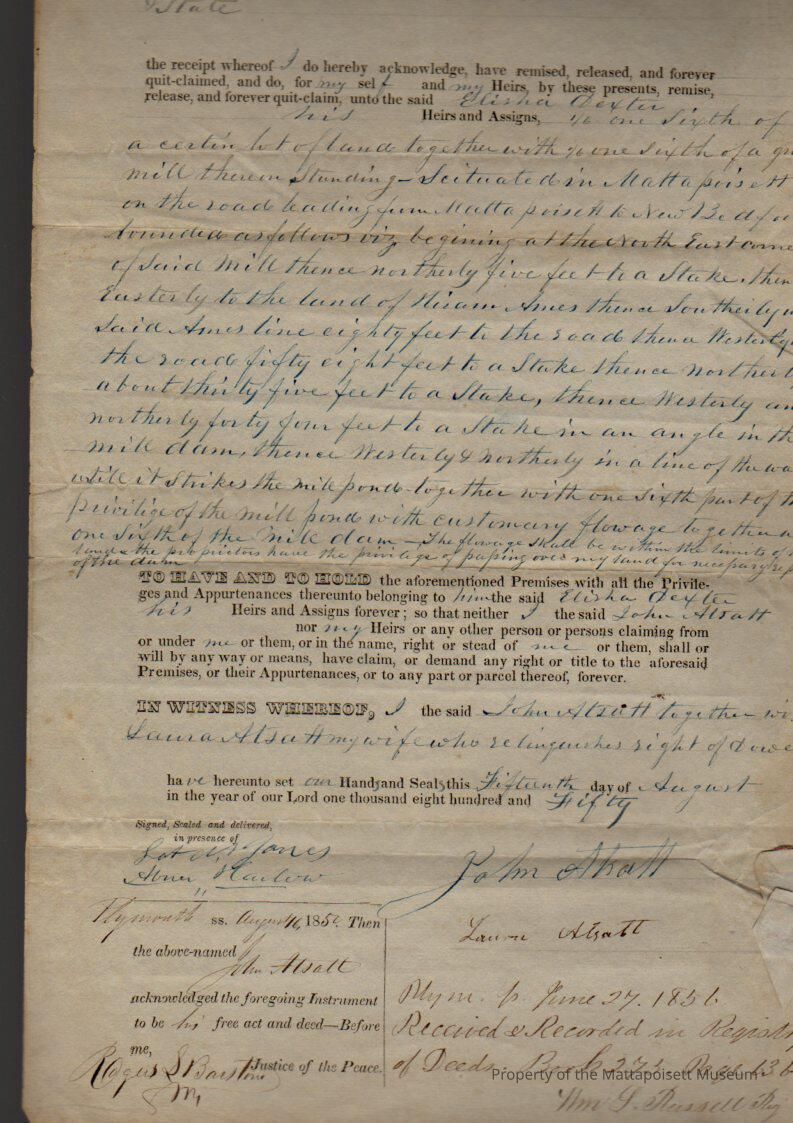 State
the receipt whereof I do hereby acknowledge, have remised, released, and forever
quit-claimed, and do, for my self and my Heirs, by these presents, remise,
release, and forever quit-claim, unto the said Elisha Dexter
his Heirs and Assigns, one Sixth of
a certin lot of land together with one Sixth of a
mill thereon Standing - Scituated in Mattapoisett
on the road leading from Mattapoisett to New Bedfo
bounded as follows viz begining at the North East corne
of Said Mill thence northerly five feet to a Stake, then
Easterly to the land of Hiram Ames thence Southerly
Said Ames line eighty feet to the road thence Westerly
the road fifty eight feet to a Stake thence northerl
about thirty five feet to a Stake, thence Westerly an
northerly forty four feet to a Stake in an angle in th
mill dam, thence Westerly & northerly in a line of the wa
untill it Strikes the mill pond - together with one Sixth part of th
privilige of the mill pond with customary flowage together
one Sixth of the mill dam - The flowage Shall be within the limits of
land & the proprietors have the privilege of passing over my land for necessary rep
of the dam
TO HAVE AND TO HOLD the aforementioned Premises with all the Privile-
ges and Appurtenances thereunto belonging to him the said Elisha Dexter
his Heirs and Assigns forever; so that neither I the said John Atsatt
nor my Heirs or any other person or persons claiming from
or under me or them, or in the name, right or stead of me or them, shall or
will by any way or means, have claim, or demand any right or title to the aforesaid
Premises, or their Appurtenances, or to any part or parcel thereof, forever.
IN WITNESS WHEREOF, I the said John Atsatt together wi
Laura Atsatt my wife who relinquishes right of dowe
have hereunto set our Hands and Seals this Fifteenth day of August
in the year of our Lord one thousand eight hundred and Fifty
Signed, Sealed and delivered,
in presence of
Jones
Abner Harlow
John Atsatt
Plymouth ss. August 16, 1850. Then
the above-named
John Atsatt
acknowledged the foregoing Instrument
to be his free act and deed—Before
me,
Rogers L Barstow Justice of the Peace.
Laura Atsatt
Plym. ss. June 27. 1856
Received & Recorded in Registr
of Deeds Book Page
Wm S. Russell Reg
Property of the Mattapoisett Museum